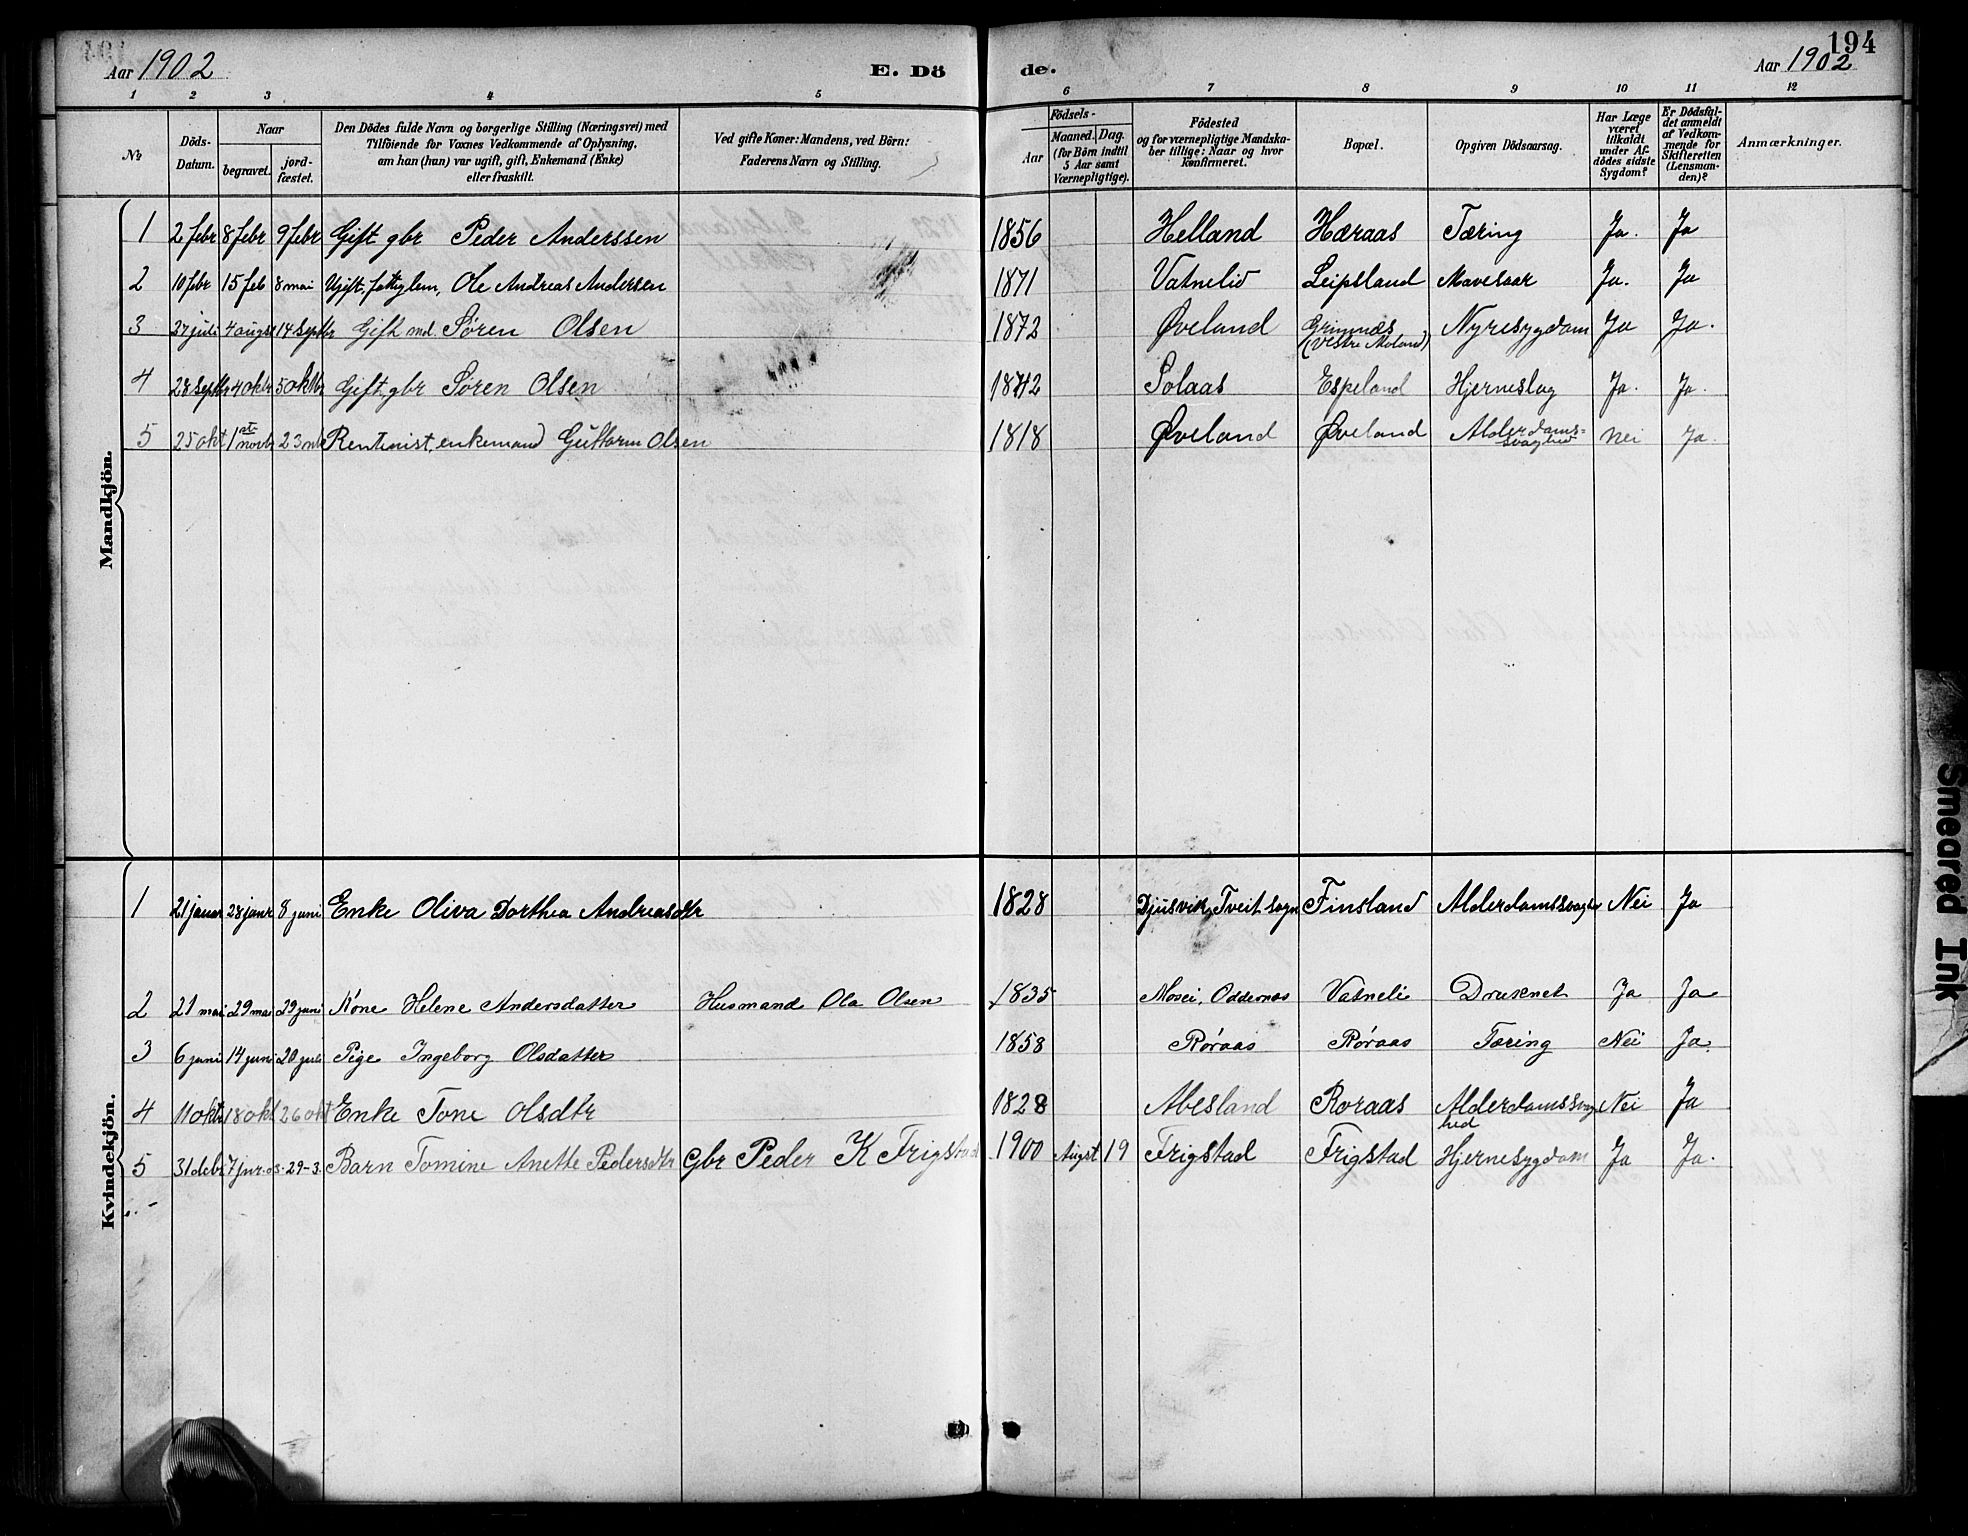 194
Aar 1902 E. Dö de. Aar 1902
1 2 3 4 5 6 7 8 9 10 11 12
Nr.
Döds-Datum.
Naar
begravet.
jordfæstet.
Den Dödes fulde Navn og borgerlige Stilling (Næringsvei) med
Tilföiende for Voxnes Vedkommende af Oplysning,
om han (han) var ugift, gift, Enkemand (Enke)
eller fraskilt.
Ved gifte Koner: Mandens, ved Börn:
Faderens Navn og Stilling.
Födsels-
Aar
Maaned. Dag.
(for Börn indtil
5 Aar samt
Værnepligtige).
Födested
og for værnepligtige Mandska-
ber tillige: Naar og hvor
konfirmeret.
Bopæl.
Opgiven Dödsaarsag.
Har Læge
været
tilkaldt
under Af-
dödes sidste
Sygdom?
Er Dödsfal-
det anmeldt
af Vedkom-
mende for
Skifteretten
(Lensman-
den)?
Anmærkninger.
Mandkjön.
1 2 febr 8 febr 9 febr Gift gbr Peder Anderssen 1856 Helland Høraas Tæring Ja. Ja
2 10 febr 15 feb 8 mai Ugift, fattiglem, Ole Andreas Andersen 1871 Vatneliд Leipsland Mavesaar Ja. Ja
3 27 juli 4 augst 14 septbr Gift md Søren Olsen 1872 Øveland Grimnæs (Vestre Moland) Nyresygdom Ja Ja.
4 28 septbr 4 oktr 5 oktbr Gift, gbr Søren Olsen 1842 Solaas Espeland Hjerneslag Ja. Ja.
5 25 okt 1ste novbr 23 Rentenist, enkemand Guttorm Olsen 1818 Øveland Øveland Alderdoms-svaghed Nei Ja.
Kvindekjön.
1 21 januar 28 janr 8 juni Enke Oliva Dorthea Andreasdtr 1828 Djusvik, Tveit sogn Finsland Alderdomssvagh Nei Ja
2 21 mai 29 mai 29 juni Kone Helene Andersdatter Husmand Ola Olsen 1835 Mosei, Oddernæs Vatneli Druknet Ja Ja
3 6 juni 14 juni 20 juli Pige Ingeborg Olsdatter 1858 Røraas Røraas Tæring Nei Ja.
4 11 oktr 18 okt 26 okt Enke Tone Olsdtr 1828 Abesland Røraas Alderdomssvaghed Nei Ja
5 31 debr 7 jnr. 03. 29-3. Barn Tomine Anette Pedersdtr Gbr Peder K Frigstad 1900 Augst 19 Frigstad Frigstad Hjernesygdom Ja Ja.
Smeared Ink